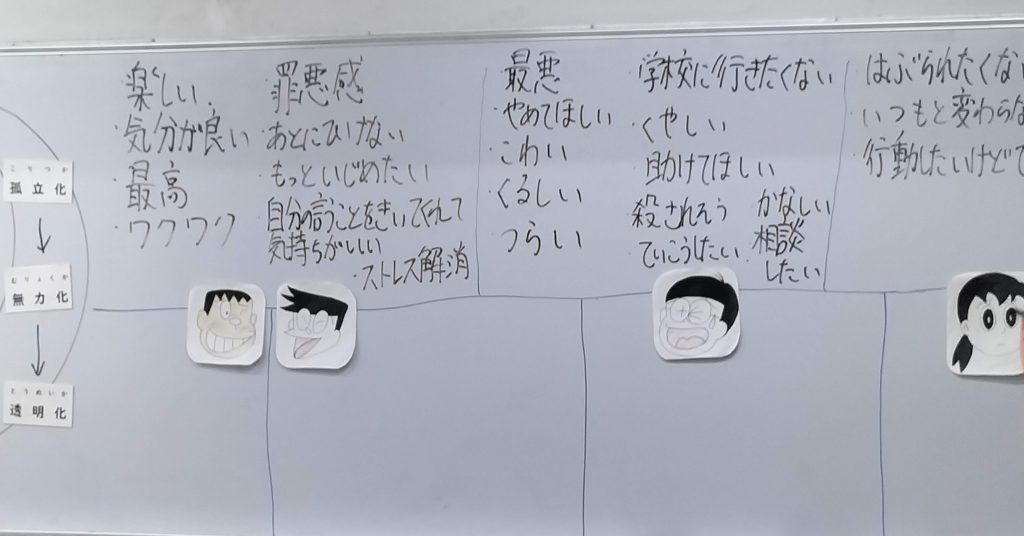 こりつか
孤立化
むりょくか
無力化
とうめいか
透明化
楽しい
・気分が良い
・最高
・ワクワク
罪悪感
・あとにひけない
・もっといじめたい
・自分の言うことをきいてくれて
気持ちがいい
・ストレス解消
最悪
・やめてほしい
・こわい
・くるしい
つらい
・学校に行きたくない
・くやしい
助けてほしい
殺されそう
ていこうしたい
・かなしい
相談
したい
はぶられたくな
いつもと変わらな
・行動したいけどで